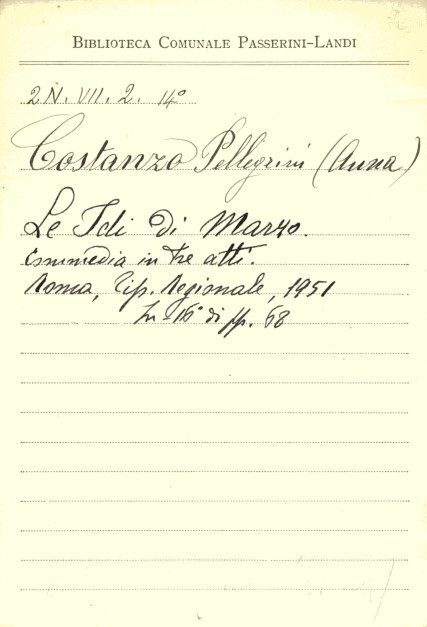 BIBLIOTECA COMUNALE PASSERINI-LANDI
2N. VII. 2. 14º
Costanzo Pellegrini (Anna)
Le Idi di Marzo.
Commedia in tre atti.
Roma, Tip. Regionale, 1951
In-16º di pp. 68